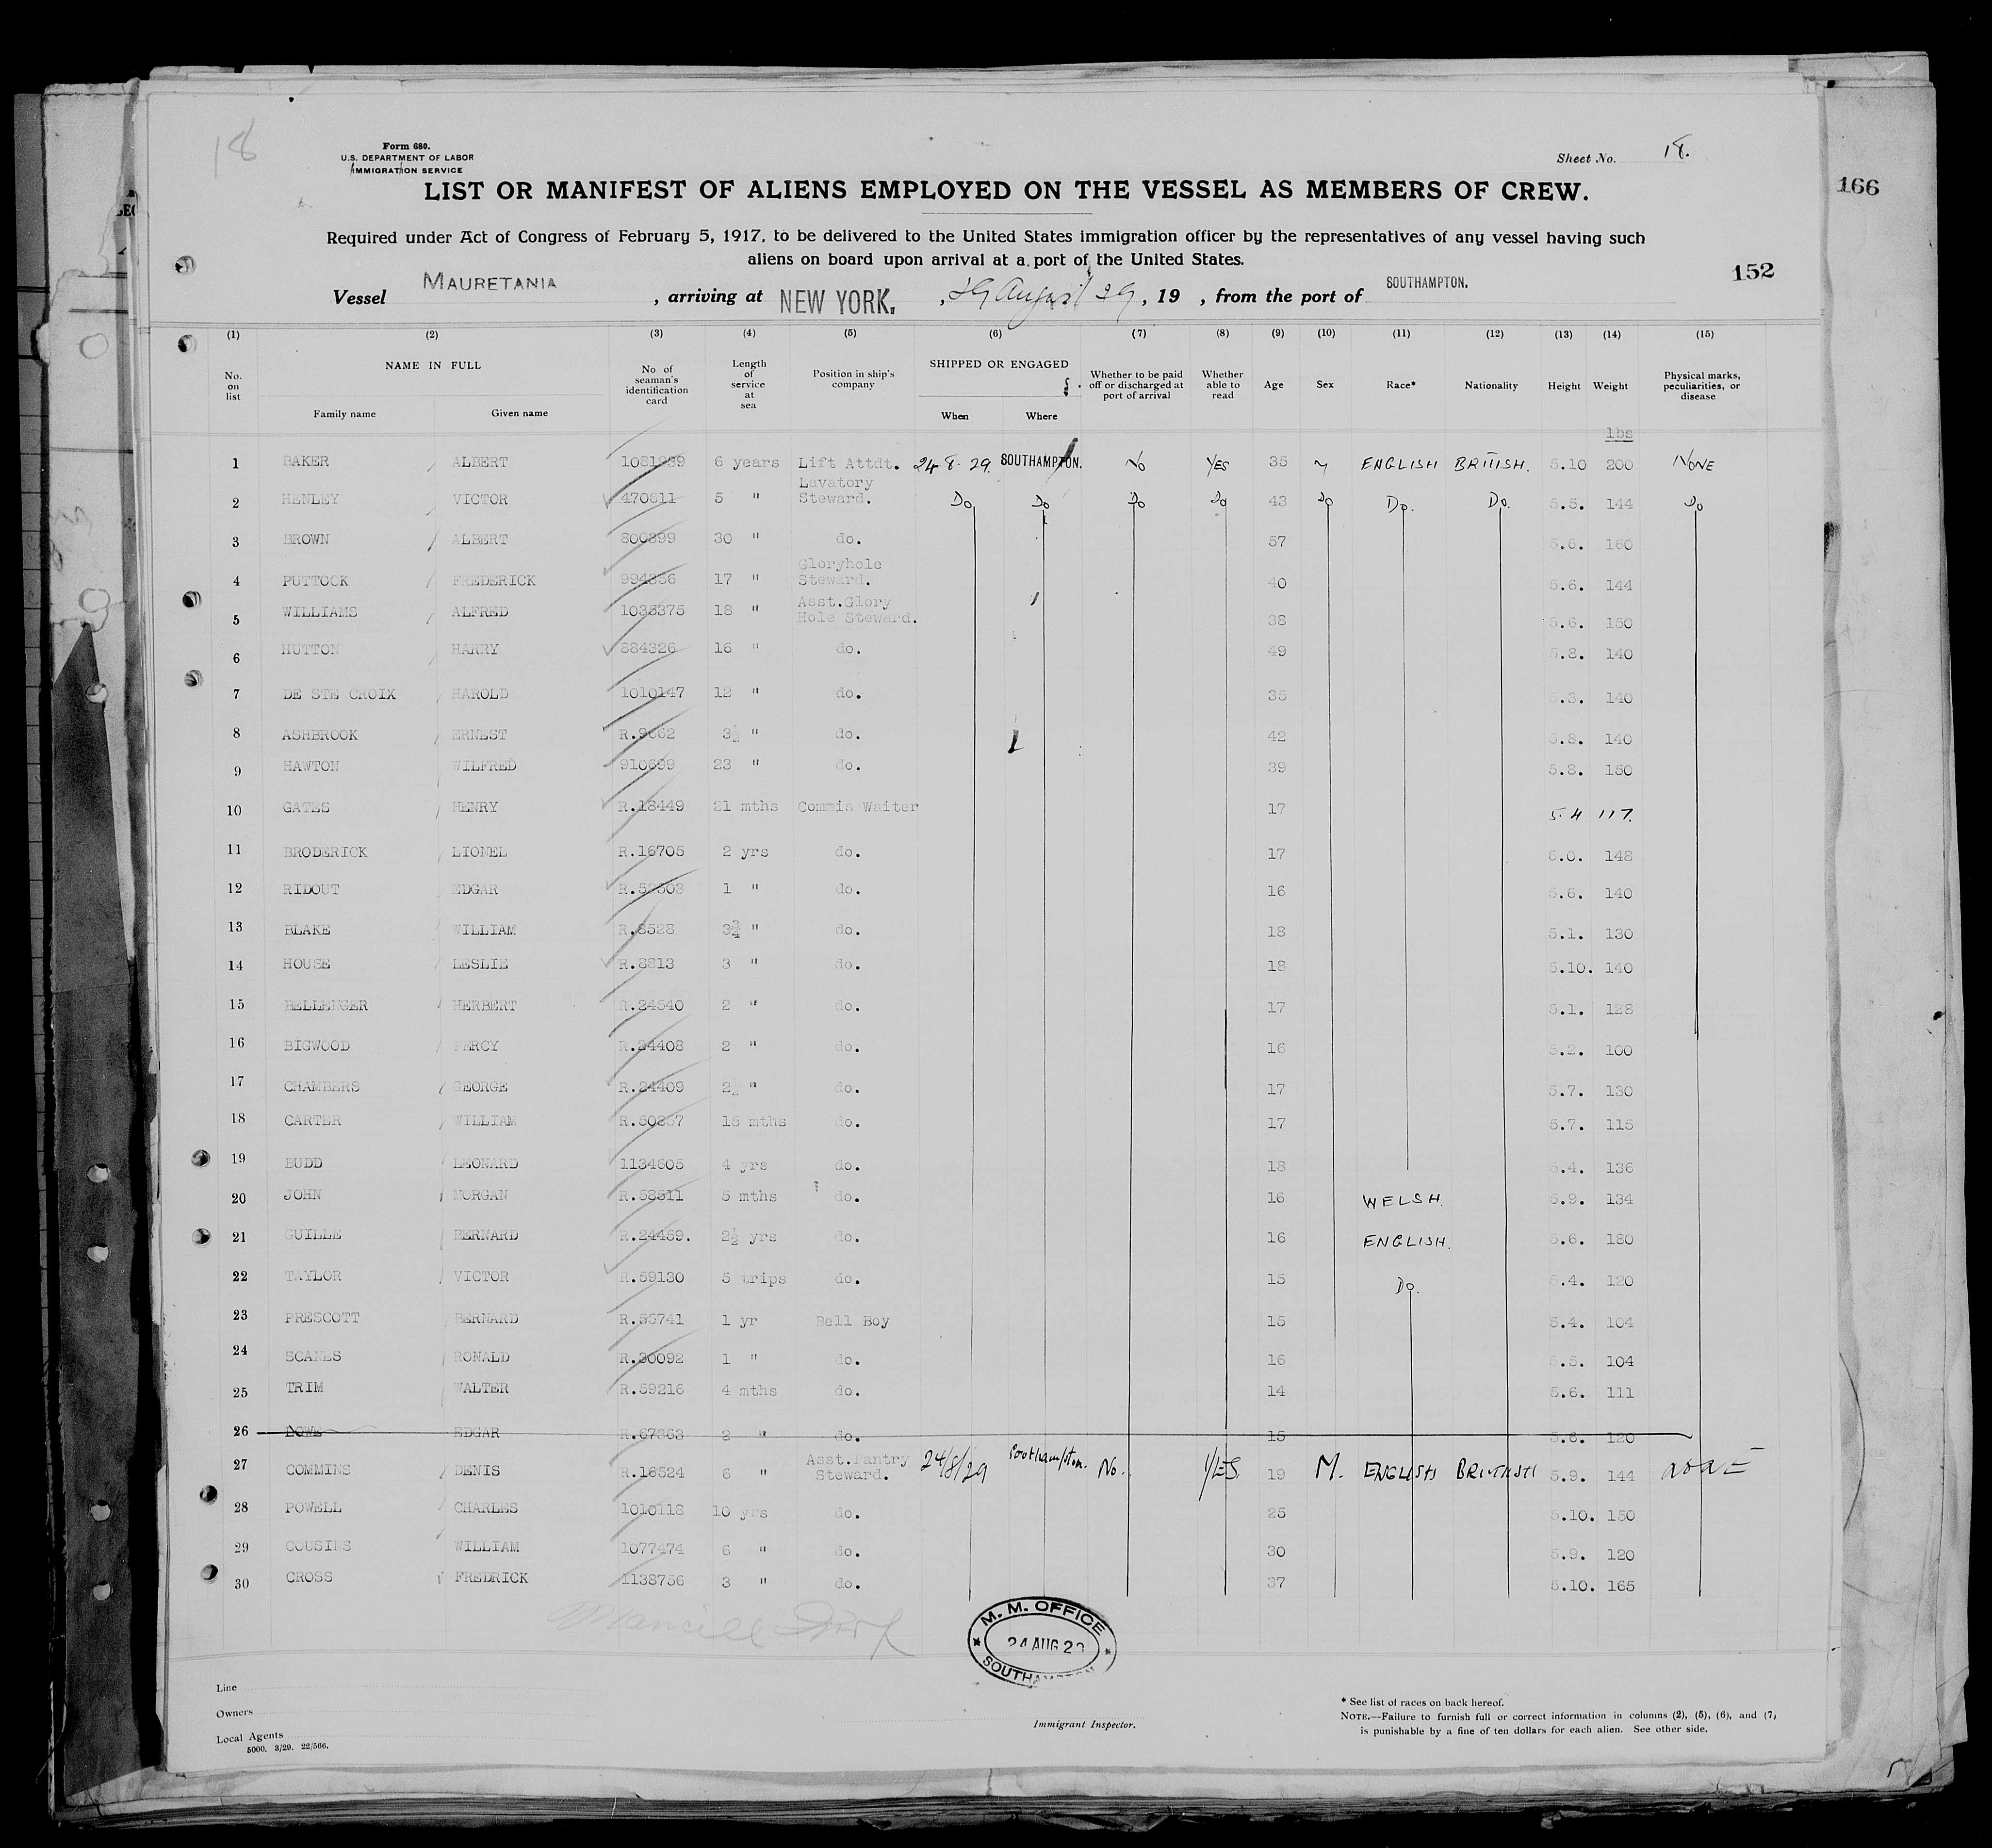 18
Form 680.
U.S. DEPARTMENT OF LABOR
IMMIGRATION SERVICE
Sheet No. 18.
LIST OR MANIFEST OF ALIENS EMPLOYED ON THE VESSEL AS MEMBERS OF CREW.
166
Required under Act of Congress of February 5, 1917, to be delivered to the United States immigration officer by the representatives of any vessel having such
aliens on board upon arrival at a port of the United States.
152
Vessel MAURETANIA , arriving at NEW YORK. , August 29, 19 , from the port of SOUTHAMPTON.
(1) (2) (3) (4) (5) (6) (7) (8) (9) (10) (11) (12) (13) (14) (15)
No. on list NAME IN FULL Family name Given name No. of seaman's identification card Length of service at sea Position in ship's company SHIPPED OR ENGAGED When Where Whether to be paid off or discharged at port of arrival Whether able to read Age Sex Race* Nationality Height Weight Physical marks, peculiarities, or disease
lbs
1 BAKER ALBERT 6 years Lift Attdt. 24.8.29. SOUTHAMPTON. No YES 35 M ENGLISH BRITISH. 5.10 200 NONE
2 HENLEY VICTOR 470611 5 " Lavatory Steward. Do Do Do Do 43 Do Do. Do. 5.5. 144 Do
3 BROWN ALBERT 800899 30 " do. 57 5.6. 160
4 PUTTOCK FREDERICK 17 " Gloryhole Steward. 40 5.6. 144
5 WILLIAMS ALFRED 18 " Asst.Glory Hole Steward. 38 5.6. 150
6 HUTTON HARRY 884326 16 " do. 49 5.8. 140
7 DE STE CROIX HAROLD 1010147 12 " do. 35 140
8 ASHBROOK ERNEST 3½ " do. 42 5.8. 140
9 HAWTON WILFRED 910699 23 " do. 39 5.8. 150
10 GATES HENRY R.18449 21 mths Commis Waiter 17 5.4 117.
11 BRODERICK LIONEL R.16705 2 yrs do. 17 6.0. 148
12 RIDOUT EDGAR 1 " do. 16 5.6. 140
13 BLAKE WILLIAM R.8528 3¾ " do. 18 5.1. 130
14 HOUSE LESLIE R.8813 3 " do. 18 5.10. 140
15 BELLENGER HERBERT R.24540 2 " do. 17 5.1. 128
16 BIGWOOD PERCY R.24408 2 " do. 16 5.2. 100
17 CHAMBERS GEORGE R.24409 2½ " do. 17 5.7. 130
18 CARTER WILLIAM 15 mths do. 17 5.7. 115
19 BUDD LEONARD 1134605 4 yrs do. 18 5.4. 136
20 JOHN MORGAN R.58511 5 mths do. 16 WELSH. 5.9. 134
21 GUILLE BERNARD R.24459. 2½ yrs do. 16 ENGLISH. 5.6. 180
22 TAYLOR VICTOR R.59130 5 trips do. 15 Do. 5.4. 120
23 PRESCOTT BERNARD 1 yr Bell Boy 15 5.4. 104
24 SCANES RONALD R.30092 1 " do. 16 5.5. 104
25 TRIM WALTER R.59216 4 mths do. 14 5.6. 111
26 LOWE EDGAR R.67863 2 " do. 15 5.6. 120
27 COMMINS DENIS R.16524 6 " Asst.Pantry Steward. 24/8/29 Southampton. No. YES. 19 M. ENGLISH BRITISH 5.9. 144 NONE
28 POWELL CHARLES 1010118 10 yrs do. 25 5.10. 150
29 COUSINS WILLIAM 1077474 6 " do. 30 5.9. 120
30 CROSS FREDRICK 1138756 3 " do. 37 5.10. 165
M. M. OFFICE
24 AUG 29
SOUTHAMPTON
Line
Owners
Local Agents
5000. 3/29. 22/566.
Immigrant Inspector.
* See list of races on back hereof.
NOTE.—Failure to furnish full or correct information in columns (2), (5), (6), and (7)
is punishable by a fine of ten dollars for each alien. See other side.